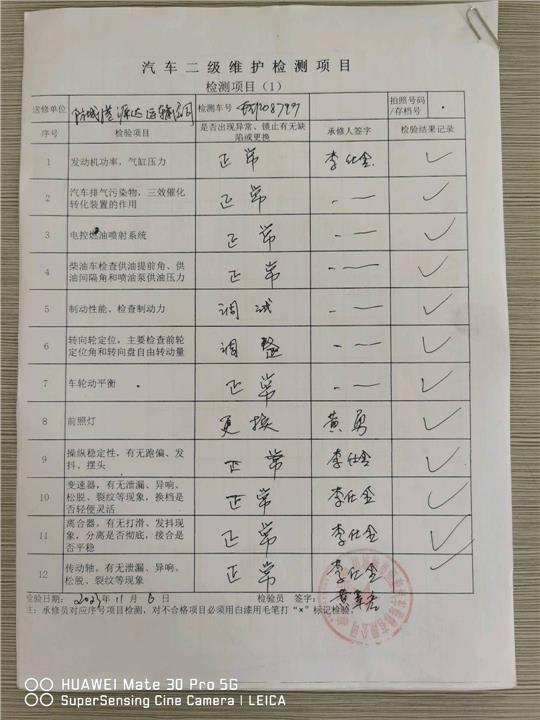 汽车二级维护检测项目
检测项目（1）
送修单位 防城港源达运输公司 检测车号 拍照号码/存档号
序号 检验项目 是否出现异常、锁止有无缺陷或更换 承修人签字 检验结果记录
1 发动机功率，气缸压力 正常 李仕金 ✓
2 汽车排气污染物，三效催化转化装置的作用 正常 ✓
3 电控燃油喷射系统 正常 ✓
4 柴油车检查供油提前角、供油间隔角和喷油泵供油压力 正常 ✓
5 制动性能、检查制动力 调试 ✓
6 转向轮定位，主要检查前轮定位角和转向盘自由转动量 调整 ✓
7 车轮动平衡 正常 ✓
8 前照灯 更换 黄勇 ✓
9 操纵稳定性，有无跑偏、发抖、摆头 正常 李仕金 ✓
10 变速器，有无泄漏、异响、松脱、裂纹等现象，换档是否轻便灵活 正常 李仕金 ✓
11 离合器，有无打滑、发抖现象，分离是否彻底，接合是否平稳 正常 李仕金 ✓
12 传动轴，有无泄漏、异响、松脱、裂纹等现象 正常 李仕金 ✓
检验日期： 2023年11月6日 检验员 签字：
主：承修员对应序号项目检测，对不合格项目必须用白漆用毛笔打"×"标记检验。
HUAWEI Mate 30 Pro 5G
SuperSensing Cine Camera | LEICA